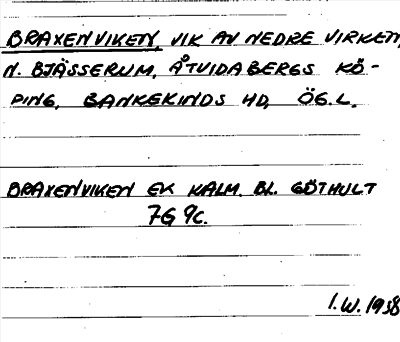 BRAXENVIKEN, VIK AV NEDRE VIRKEN,
N. BJÄSSERUM, ÅTVIDABERGS KÖ-
PING, BANKEKINDS HD, ÖG.L.
BRAXENVIKEN EK KALM. BL. GÖTHULT
7G 9c.
I.W. 1958